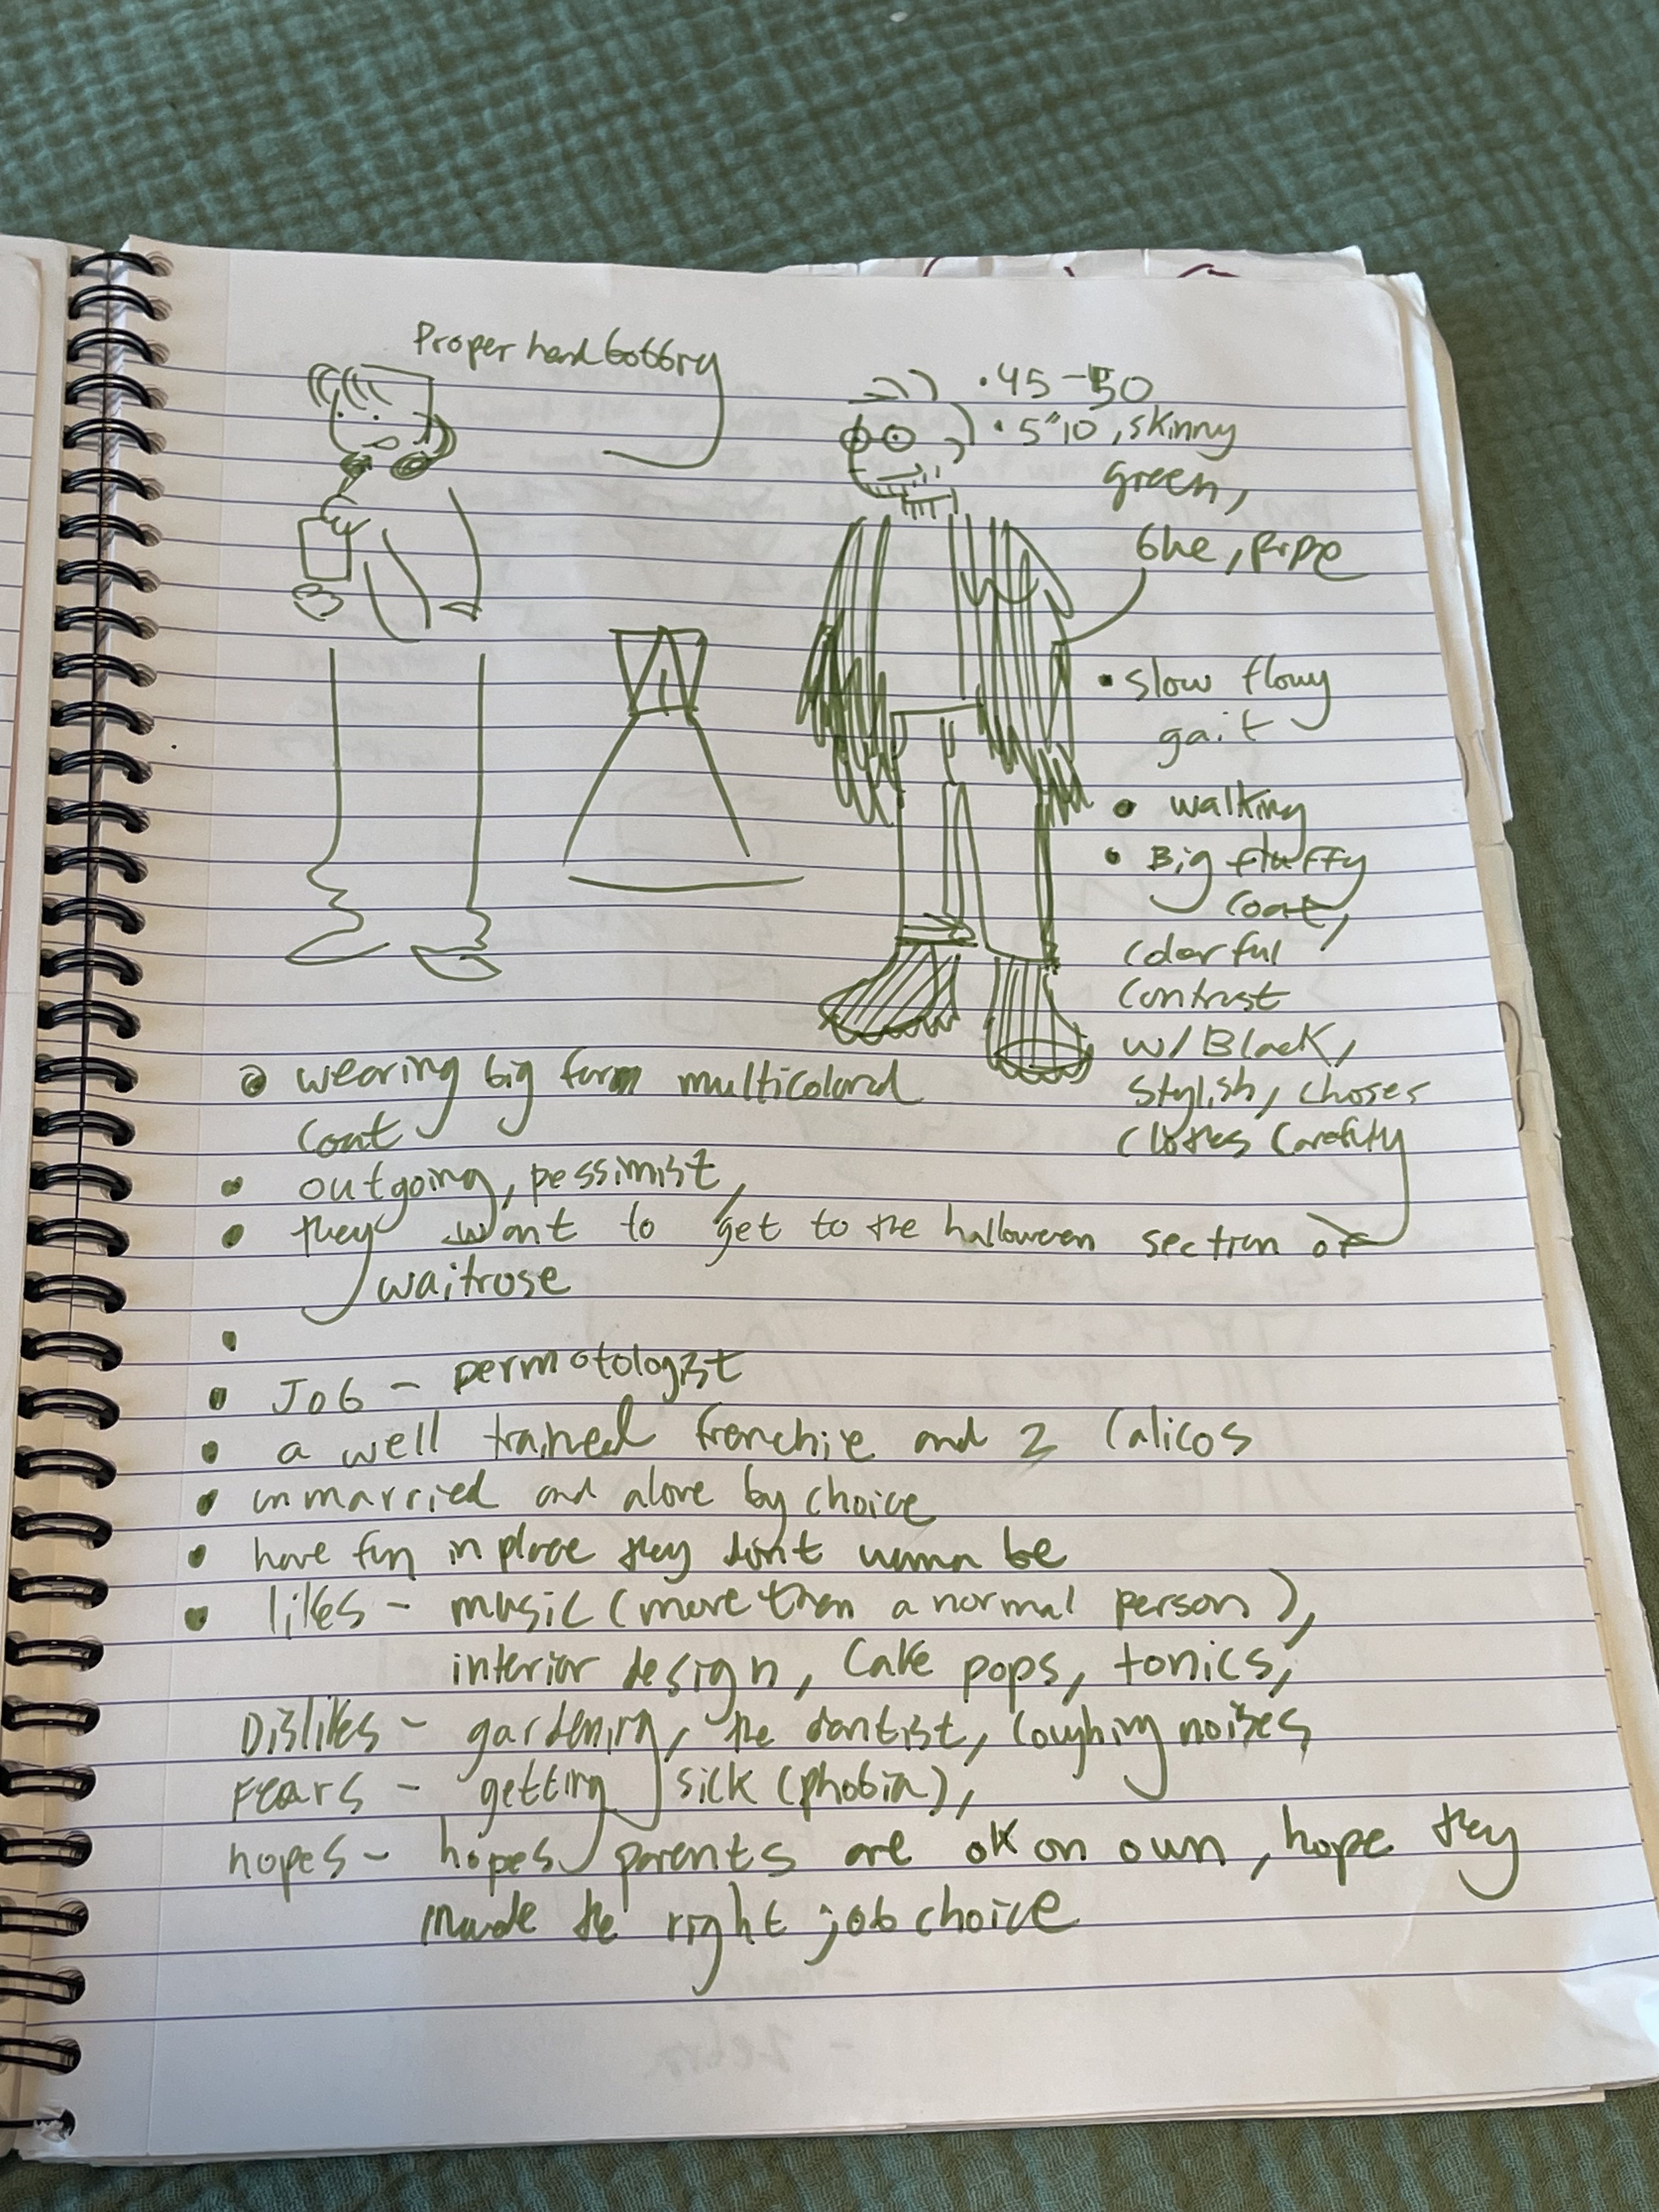 Proper head
• 45 - 50
• 5"10, skinny
green,
blue, purple
• slow flowy
gait
• walking
• Big fluffy
coat,
colorful
contrast
w/ Black,
stylish, choses
clothes carefully
• wearing big multicolored
coat
• outgoing, pessimist,
• they want to get to the halloween section of
waitrose
•
• Job - permatologist
• a well trained frenchie and 2 Calicos
• unmarried and alone by choice
• have fun in place they don't wanna be
• likes - music (more than a normal person),
interior design, Cake pops, tonics,
Dislikes - gardening, the dentist, coughing noises
Fears - getting sick (phobia),
hopes - hopes parents are ok on own, hope they
made the right job choice